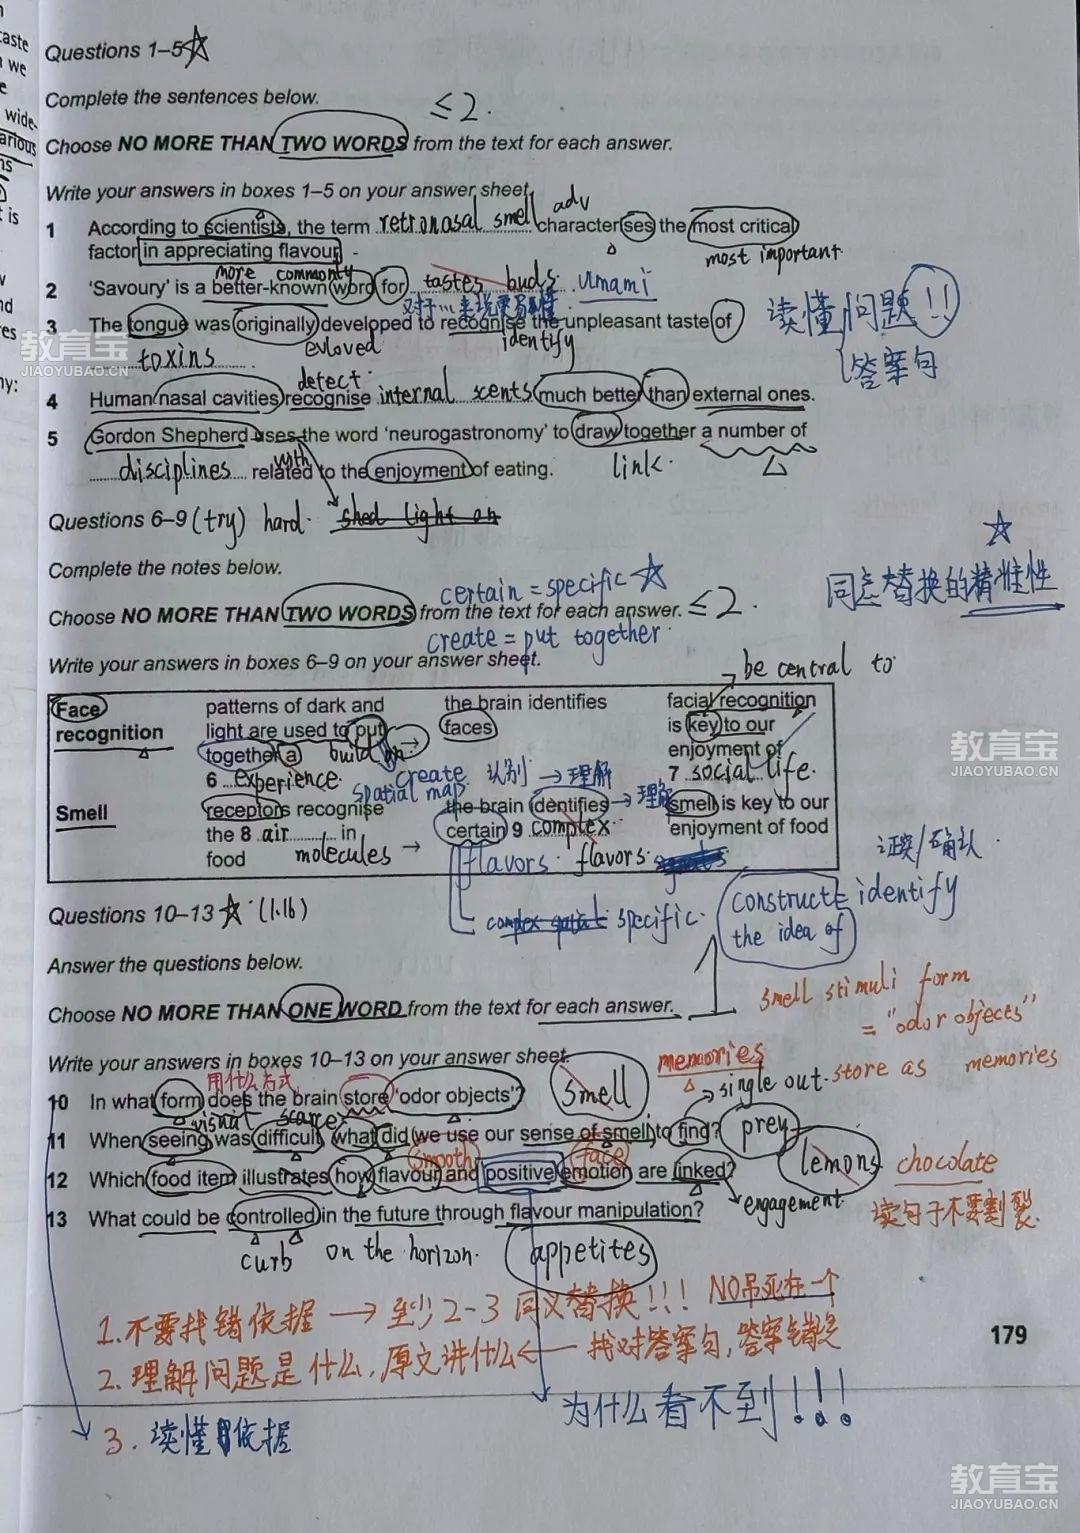 caste
we
e
wide-
arious
ns
t is
nd
res
ny:
Questions 1–5 ☆
Complete the sentences below.
≤2.
Choose NO MORE THAN TWO WORDS from the text for each answer.
Write your answers in boxes 1–5 on your answer sheet.
adv
1 According to scientists, the term retronasal smell characterises the most critical
factor in appreciating flavour.
most important.
more commonly
2 ‘Savoury’ is a better-known word for tastes buds. umami
3 The tongue was originally developed to recognise the unpleasant taste of
toxins evloved identify
读懂问题!!
答案句
detect.
4 Human nasal cavities recognise internal scents much better than external ones.
5 Gordon Shepherd uses the word ‘neurogastronomy’ to draw together a number of
disciplines related to the enjoyment of eating.
with
link.
Questions 6–9 (try) hard. shed light on
Complete the notes below.
certain = specific ☆
☆
同义替换的精准性
Choose NO MORE THAN TWO WORDS from the text for each answer. ≤2.
create = put together.
Write your answers in boxes 6–9 on your answer sheet.
→ be central to
Face recognition
patterns of dark and light are used to put together a
build on →
6 experience.
create
spatial map
the brain identifies faces
认别 → 理解
facial recognition is key to our enjoyment of
7 social life.
Smell
receptors recognise the 8 air in food
molecules →
the brain identifies certain 9 complex
→ 理解
flavors. flavors.
smell is key to our enjoyment of food
证实/确认.
specific.
construct = identify
the idea of
Questions 10–13 ☆ (1.16)
Answer the questions below.
Choose NO MORE THAN ONE WORD from the text for each answer.
smell stimuli form
= "odor objects"
store as memories
Write your answers in boxes 10–13 on your answer sheet.
用什么方式
memories
→ single out.
10 In what form does the brain store ‘odor objects’? smell
visual scarce
11 When seeing was difficult, what did we use our sense of smell to find? prey
smooth face
12 Which food item illustrates how flavour and positive emotion are linked? lemons chocolate
engagement.
读句子不要割裂.
13 What could be controlled in the future through flavour manipulation?
curb on the horizon. appetites
1.不要找错依据 → 至少2-3同义替换!!! NO吊死在一个
2.理解问题是什么,原文讲什么 ← 找对答案句,答案错误
179
为什么看不到!!!
3.读懂依据
教育宝
JIAOYUBAO.CN
教育宝
JIAOYUBAO.CN
教育宝
JIAOYUBAO.CN